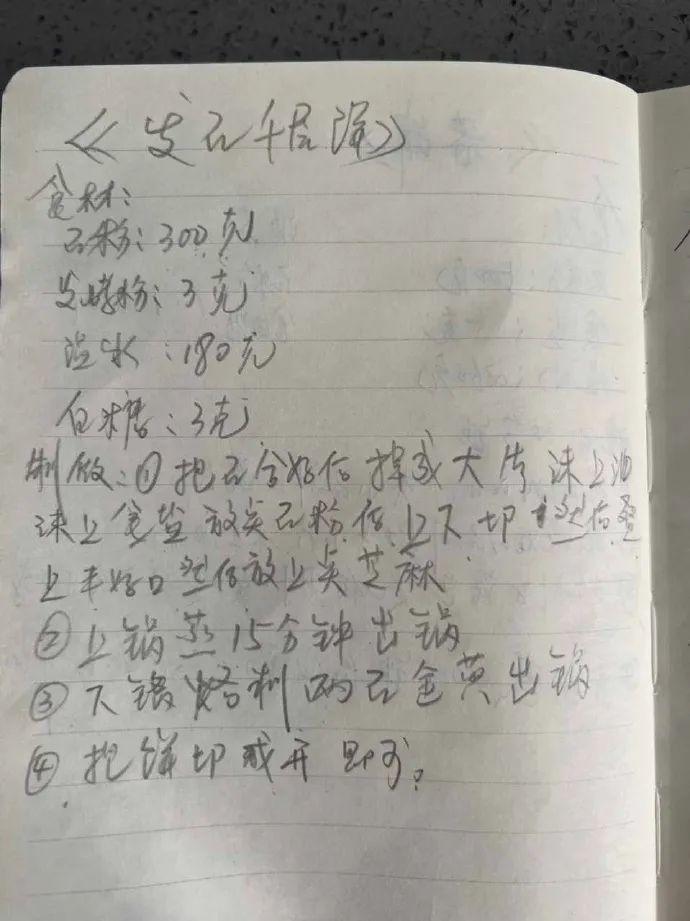 《发面千层饼》
食材:
面粉:300克
发酵粉:3克
温水:180克
白糖:3克
制做:①把面合好后擀成大片沫上油
沫上食盐放点面粉后上下切然后叠
上丰好口然后放上点芝麻
②上锅蒸15分钟出锅
③下锅烙制两面金黄出锅
④把饼切成开即可。